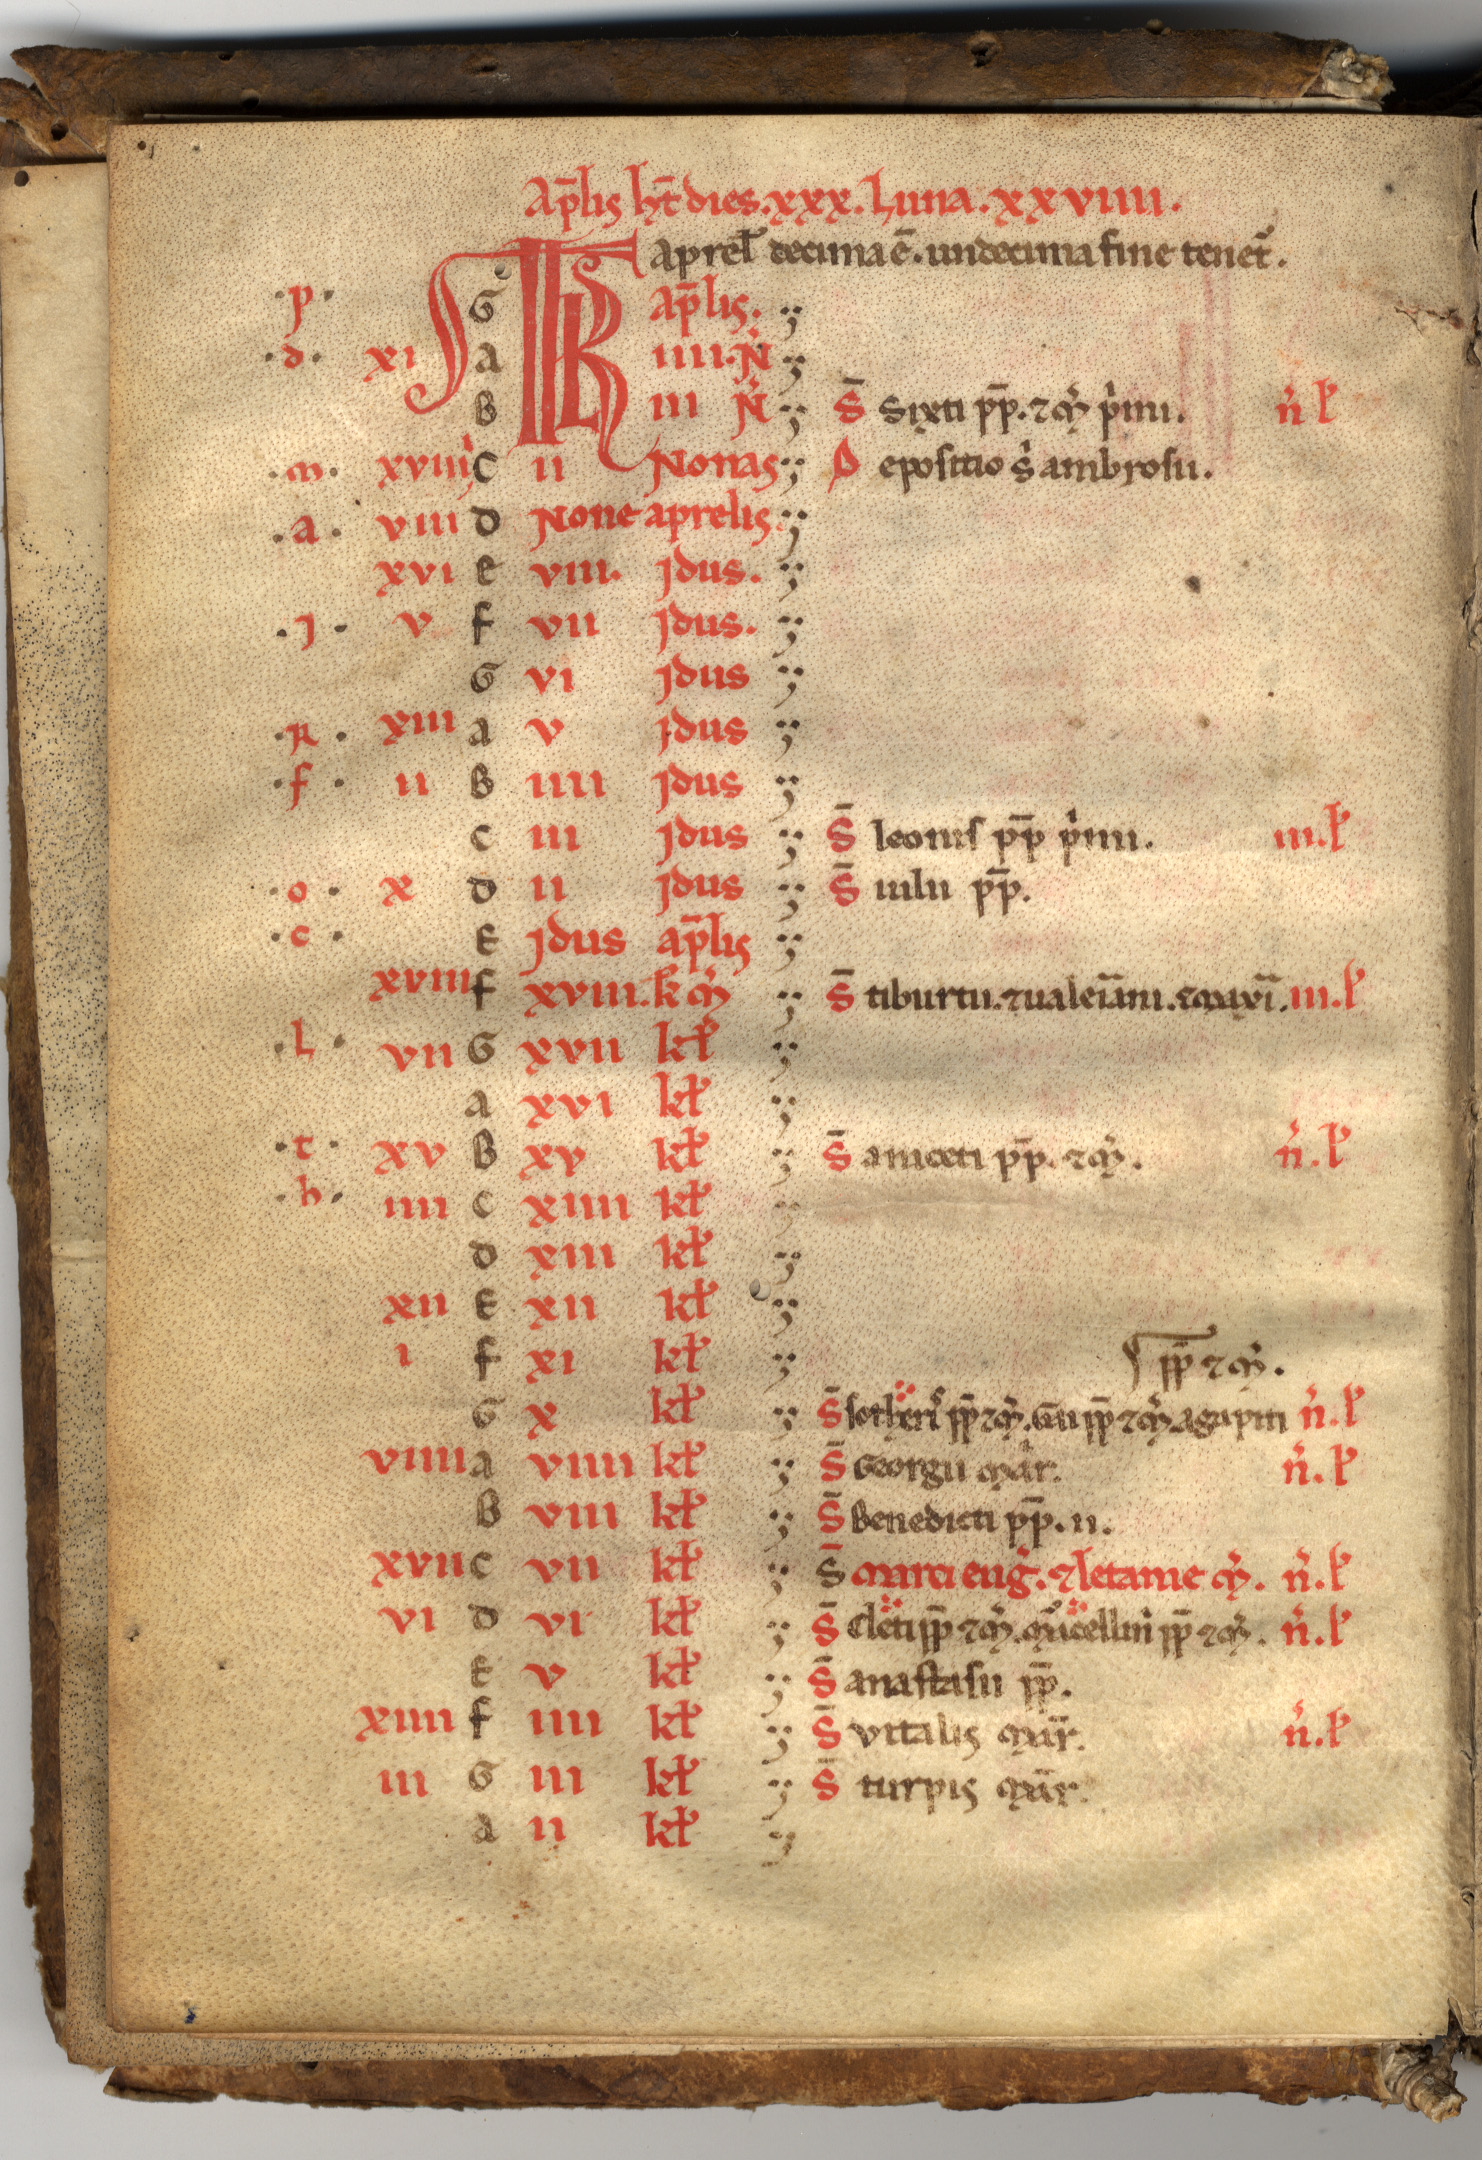 Ap̄lis hт̄ dies. xxx. Luna. xxviiii.
KL aprel̄ decima ē. undecima fine tenet᷑.
.p. G Ap̄lis.
.d. xi a iiii. N̄
B iii N̄ S̄ Sixti pp̄. ⁊ m̄ p̍mi. n̍ l̍
.m. xviiii C ii Nonas D epositio s̍ ambrosii.
.a. viii d None aprelis.
xvi E viii. jdus.
.j. v f vii jdus.
G vi jdus
.R. xiii a v jdus
.f. ii B iiii jdus
C iii jdus S̄ leonis pp̄ p̍mi. iii. l̍
.o. x d ii jdus S̄ iulii pp̄.
.c. E jdus ap̄lis
xviii f xviii. k̄ m̍ S̄ tiburtii. ⁊ ualeīani. ⁊ maxī. iii. l̍
.l. vii G xvii kł
a xvi kł
.t. xv B xv kł S̄ aniceti pp̄. ⁊ m̍. n̍. l̍
.h. iiii C xiiii kł
d xiii kł
xii E xii kł
i f xi kł pp̄ ⁊ m̍.
G x kł S̄ sotheri pp̄ ⁊ m̍. Gaii pp̄ ⁊ m̍. agapiti n̍. l̍
viiii a viiii kł S̄ Georgii mar̄. n̍. l̍
B viii kł S̄ Benedicti pp̄. ii.
xvii C vii kł S̄ marci eug̍. ⁊ letanie m̍. n̍. l̍
vi d vi kł S̄ Cleti pp̄ ⁊ m̍. m̍cellini pp̄ ⁊ m̍. n̍. l̍
E v kł S̄ anastasii pp̄.
xiiii f iiii kł S̄ vitalis mar̄. n̍. l̍
iii G iii kł S̄ turpis mar̄.
a ii kł